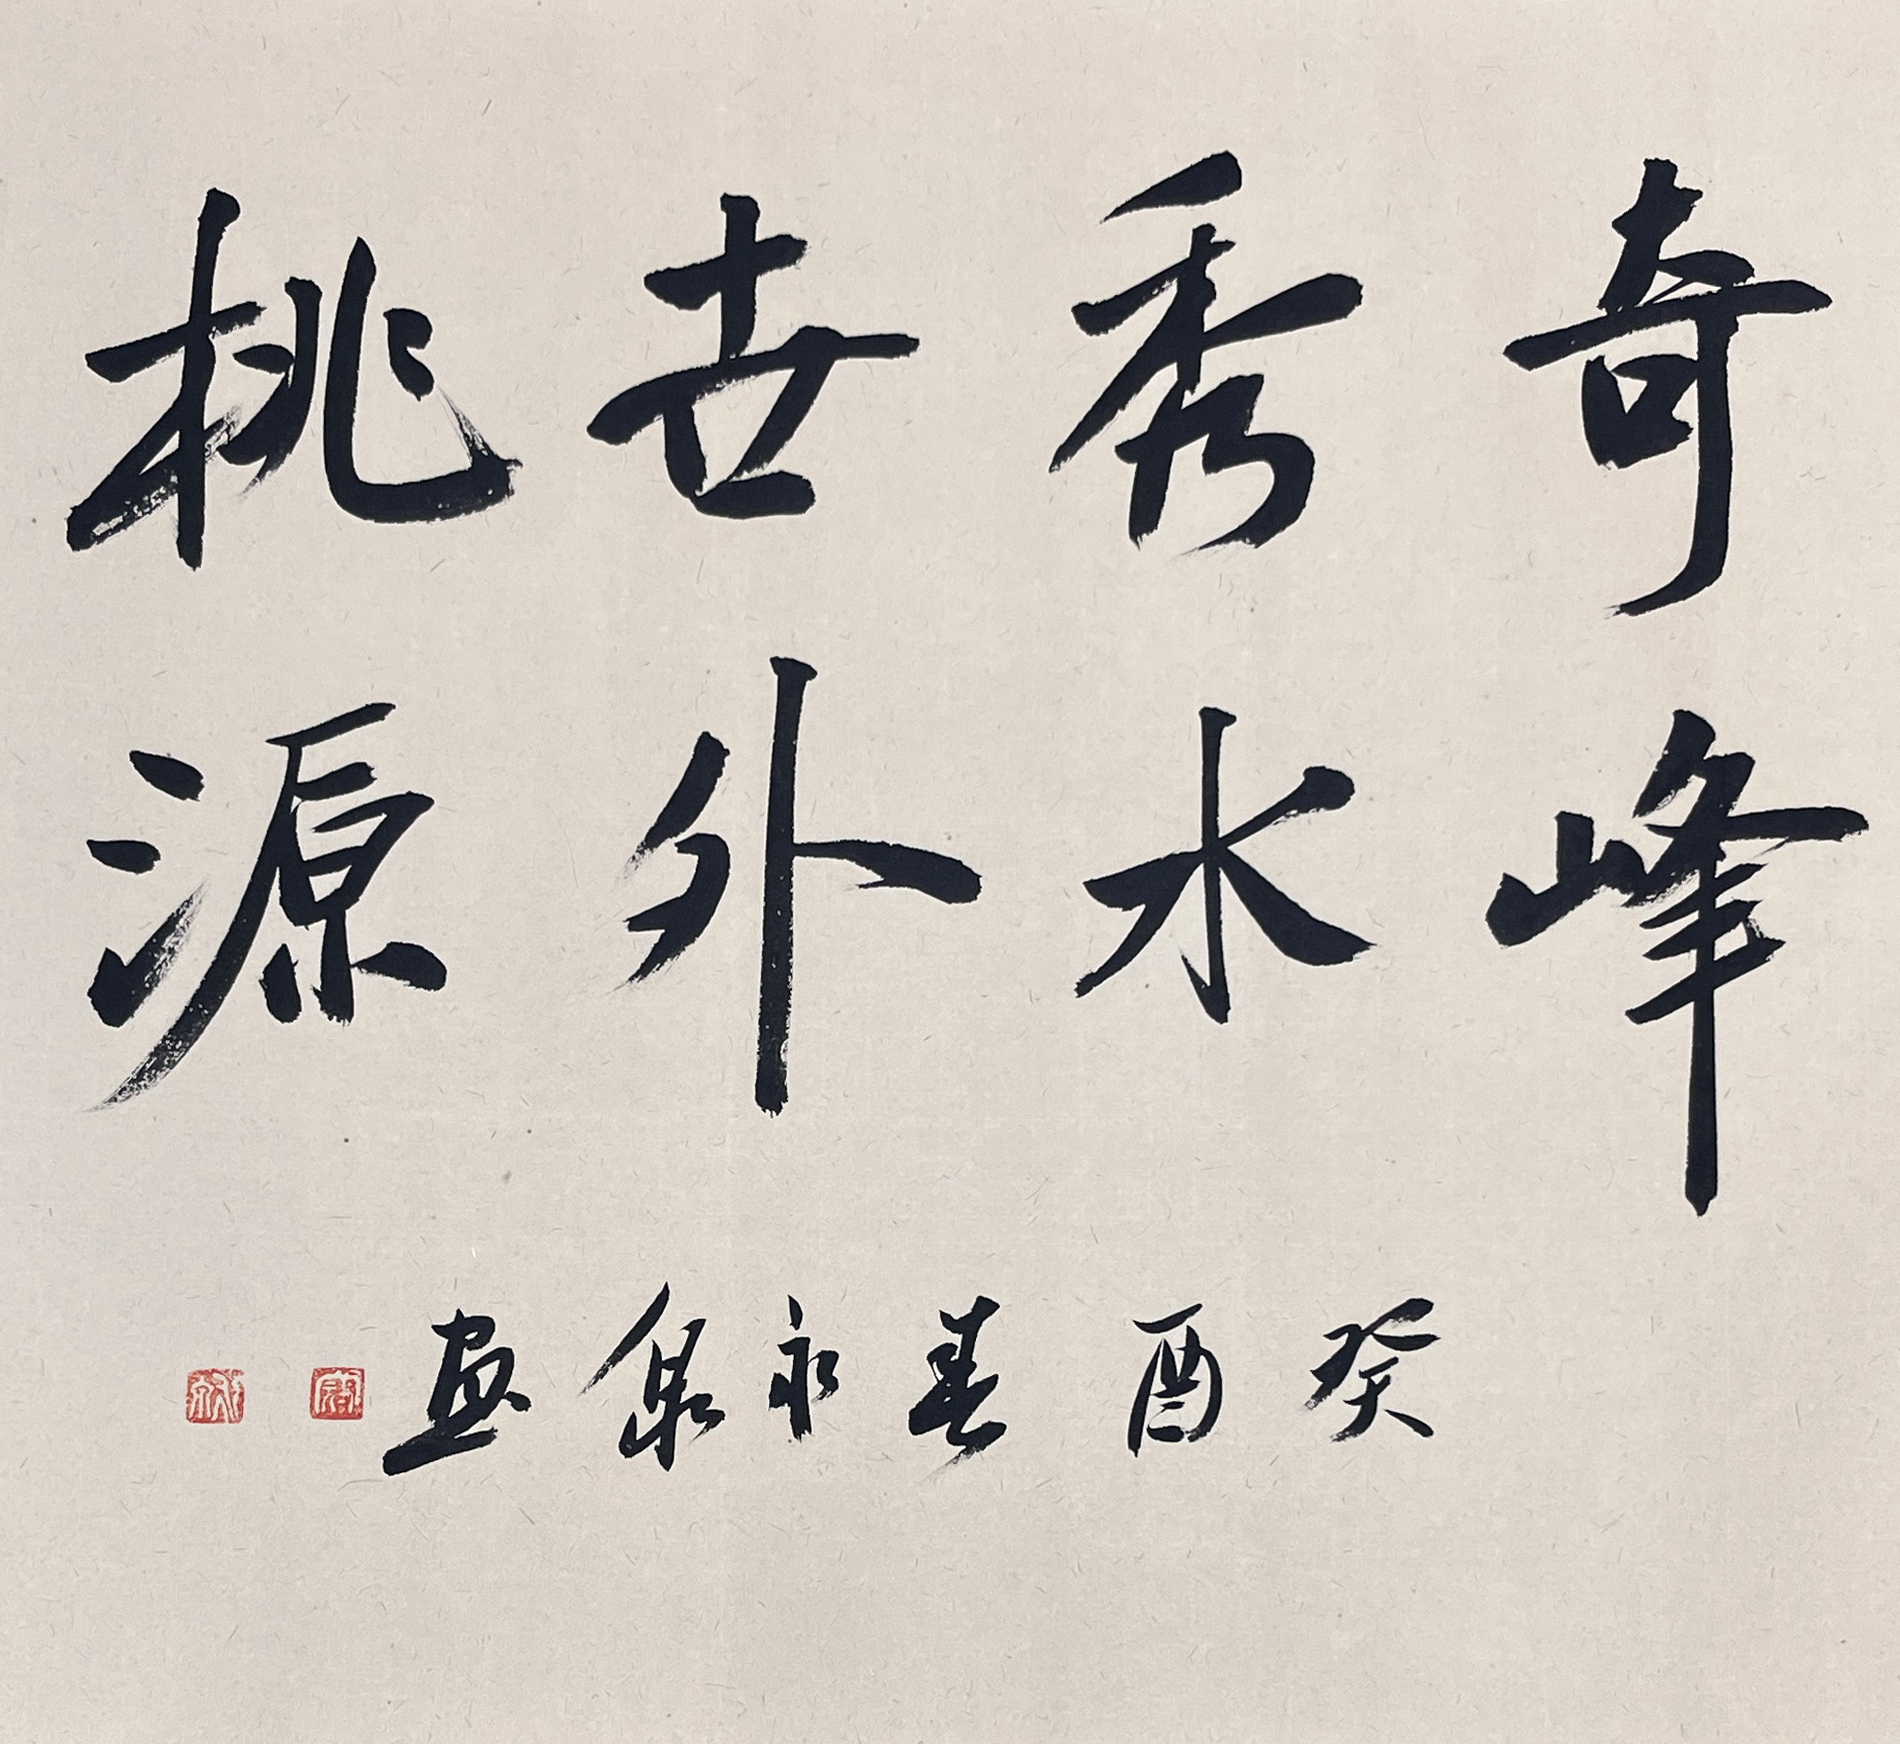 奇峰
秀水
世外
桃源
癸酉春永泉画